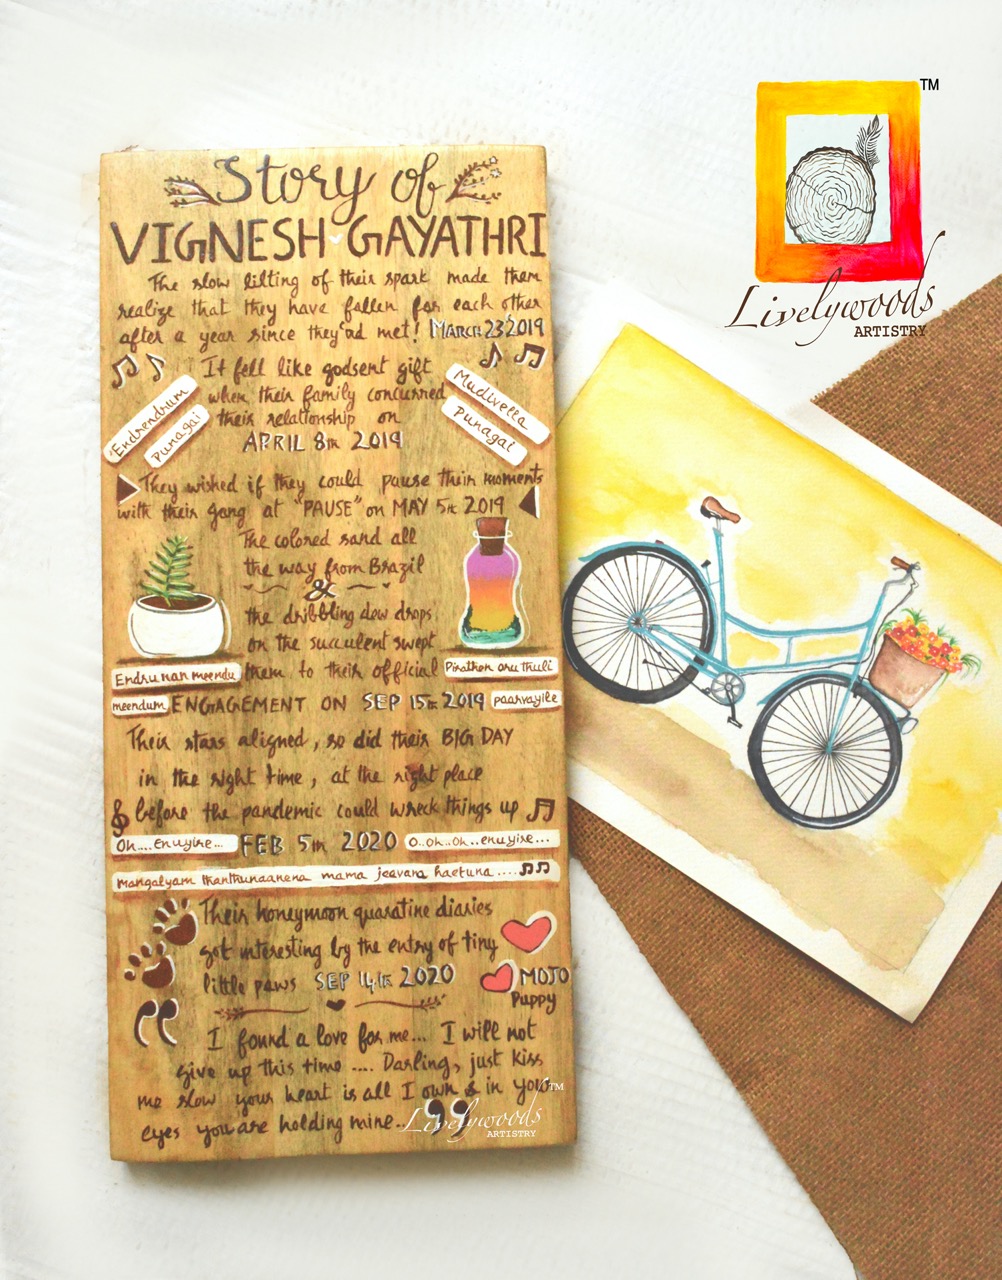 TM
Livelywoods
ARTISTRY
Story of
VIGNESH GAYATHRI
The slow lilting of their spark made them
realize that they have fallen for each other
after a year since they'ad met! MARCH 23 2019
It fell like godsent gift
when their family concurred
their relationship on
APRIL 8th 2019
Endrendrum
Punagai
Mudivella
Punagai
They wished if they could pause their moments
with their gang at "PAUSE" on MAY 5th 2019
The colored sand all
the way from Brazil
&
the dribbling dew drops
on the succulent swept
Endru nan meendu them to their official Pirathen oru thuli
meendum ENGAGEMENT ON SEP 15th 2019 paarvayile
Their stars aligned, so did their BIG DAY
in the right time, at the right place
before the pandemic could wreck things up
Oh....enuyire... FEB 5th 2020 O..oh..oh..enuyire...
mangalyam thanthunaanena mama jeevana haetuna ....
Their honeymoon quaratine diaries
got interesting by the entry of tiny
little paws SEP 14th 2020 MOJO
Puppy
“ I found a love for me... I will not
give up this time .... Darling, just kiss
me slow your heart is all I own & in your
eyes you are holding mine.. ”
Livelywoods TM
ARTISTRY